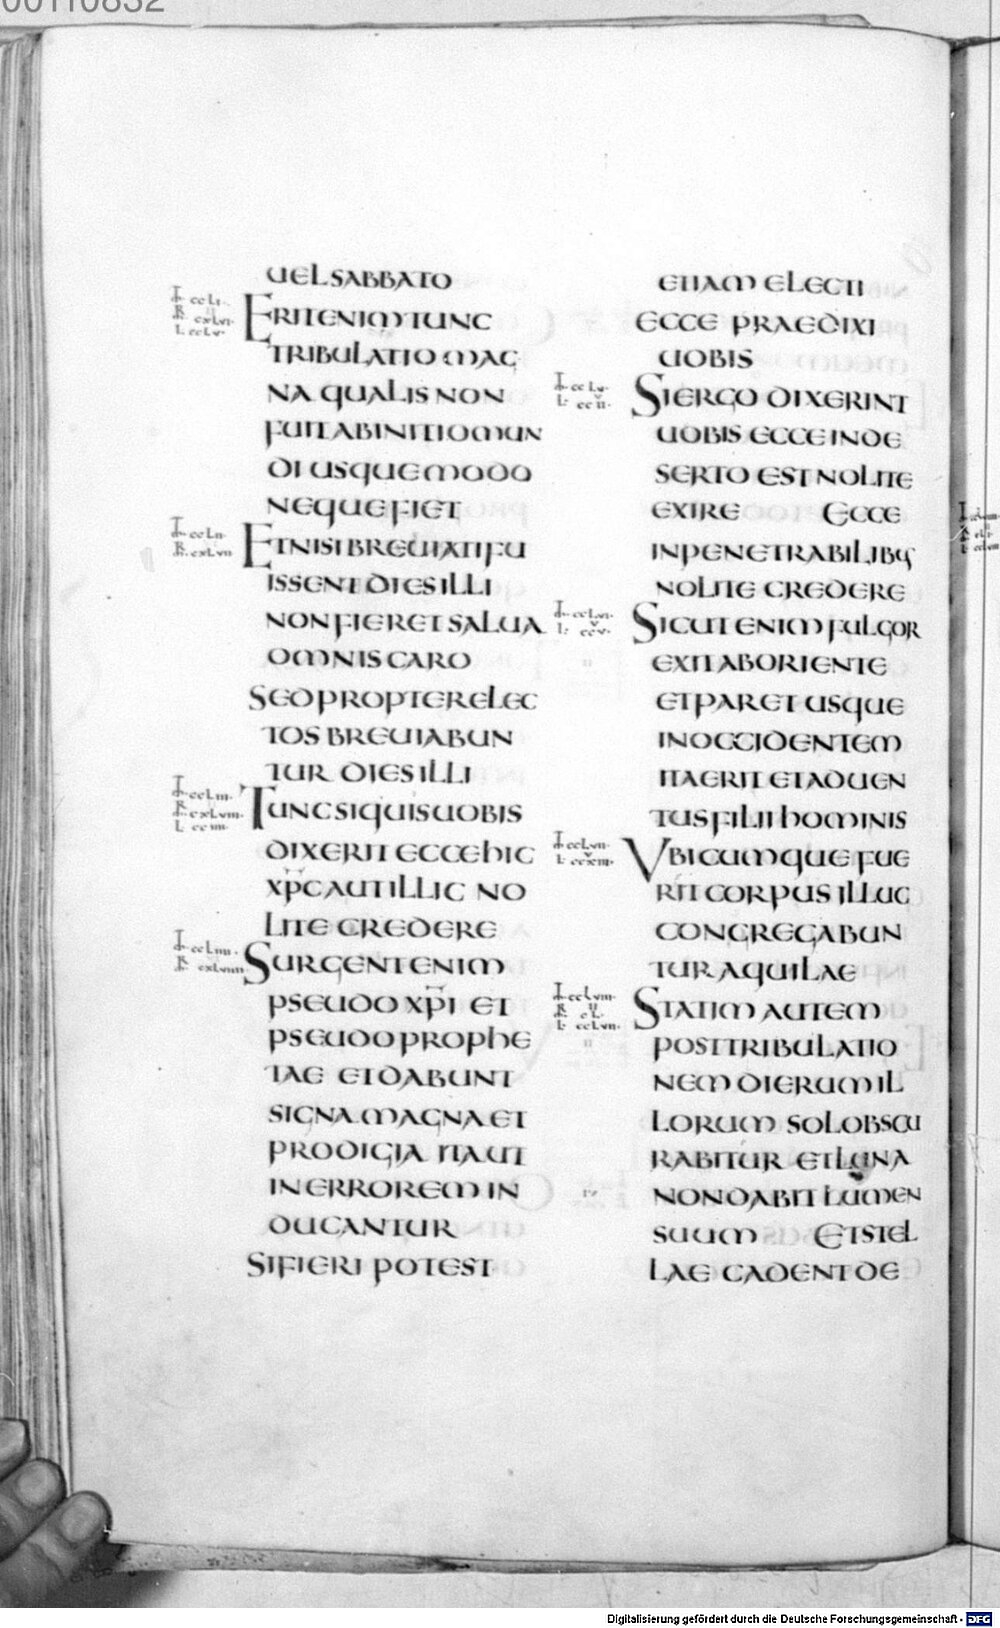 UEL SABBATO
ERIT ENIM TUNC
TRIBULATIO MAG
NA QUALIS NON
FUIT AB INITIO MUN
DI USQUE MODO
NEQUE FIET
ET NISI BREUIATI FU
ISSENT DIES ILLI
NON FIERET SALUA
OMNIS CARO
SED PROPTER ELEC
TOS BREUIABUN
TUR DIES ILLI
TUNC SI QUIS UOBIS
DIXERIT ECCE HIC
XP̅C AUT ILLIC NO
LITE CREDERE
SURGENT ENIM
PSEUDO XP̅I ET
PSEUDO PROPHE
TAE ET DABUNT
SIGNA MAGNA ET
PRODIGIA ITA UT
IN ERROREM IN
DUCANTUR
SI FIERI POTEST
ETIAM ELECTI
ECCE PRAEDIXI
UOBIS
SI ERGO DIXERINT
UOBIS ECCE IN DE
SERTO EST NOLITE
EXIRE ECCE
IN PENETRABILIBQ
NOLITE CREDERE
SICUT ENIM FULGOR
EXIT AB ORIENTE
ET PARET USQUE
IN OCCIDENTEM
ITA ERIT ET ADUEN
TUS FILII HOMINIS
UBICUMQUE FUE
RIT CORPUS ILLUC
CONGREGABUN
TUR AQUILAE
STATIM AUTEM
POST TRIBULATIO
NEM DIERUM IL
LORUM SOL OBSCU
RABITUR ET LUNA
NON DABIT LUMEN
SUUM ET STEL
LAE CADENT DE
Digitalisierung gefördert durch die Deutsche Forschungsgemeinschaft - DFG